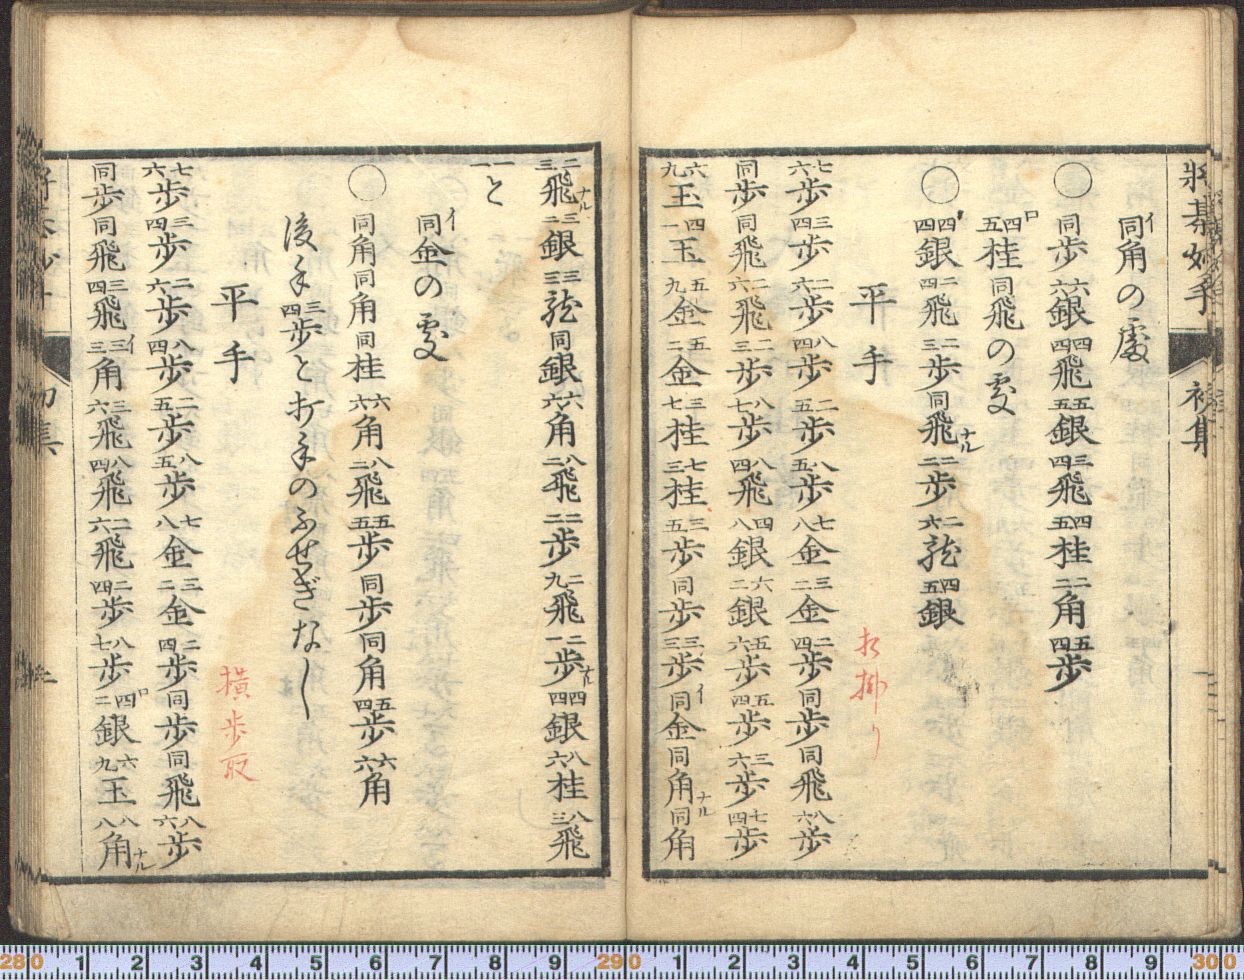 将棊妙手 初集
イ同角の處
◯同歩六六銀四四飛五五銀三四飛四五桂二二角五四歩
ロ四五桂同飛の䖏
◯四四銀二四飛二三歩同飛ナル二二歩二六龍四五銀
平手 相掛り
七六歩三四歩二六歩八四歩二五歩八五歩七八金三二金二四歩同歩同飛八六歩
同歩同飛二六飛二三歩八七歩八四飛四八銀六二銀五六歩五四歩三六歩七四歩
六九玉四一玉五九金五二金三七桂七三桂三五歩同歩三三歩イ同金同角ナル同角
二三飛ナル三二銀三三龍同銀六六角八二飛二二歩二九飛二一歩ナル四四銀八六桂八三飛
一一と
イ同金の䖏
◯同角同角同桂六六角八二飛五五歩同歩同角五四歩六六角
後手三四歩と打手のふせぎなし
平手 横歩取
七六歩三四歩二六歩八四歩二五歩八五歩七八金三二金二四歩同歩同飛八六歩
同歩同飛三四飛イ三三角三六飛八四飛二六飛二四歩八七歩ロ四二銀六九玉八八角ナル